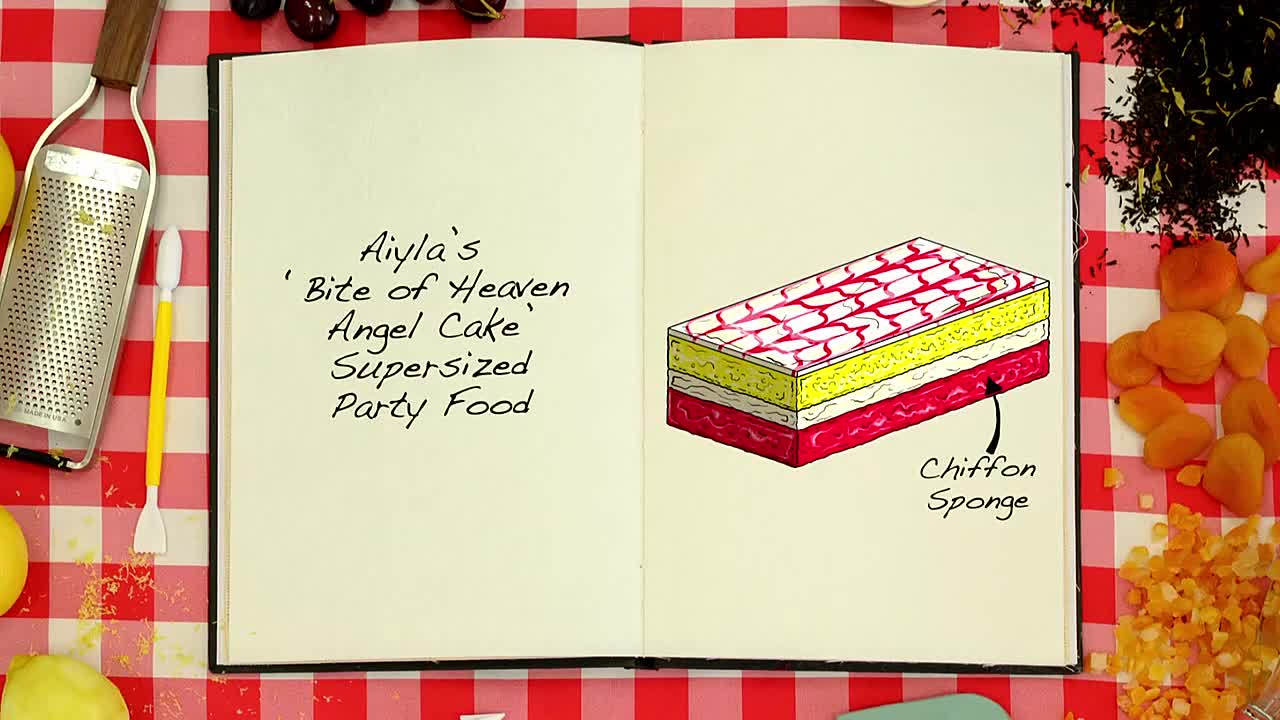 Aiyla's
'Bite of Heaven
Angel Cake'
Supersized
Party Food
Chiffon
Sponge
MADE IN USA